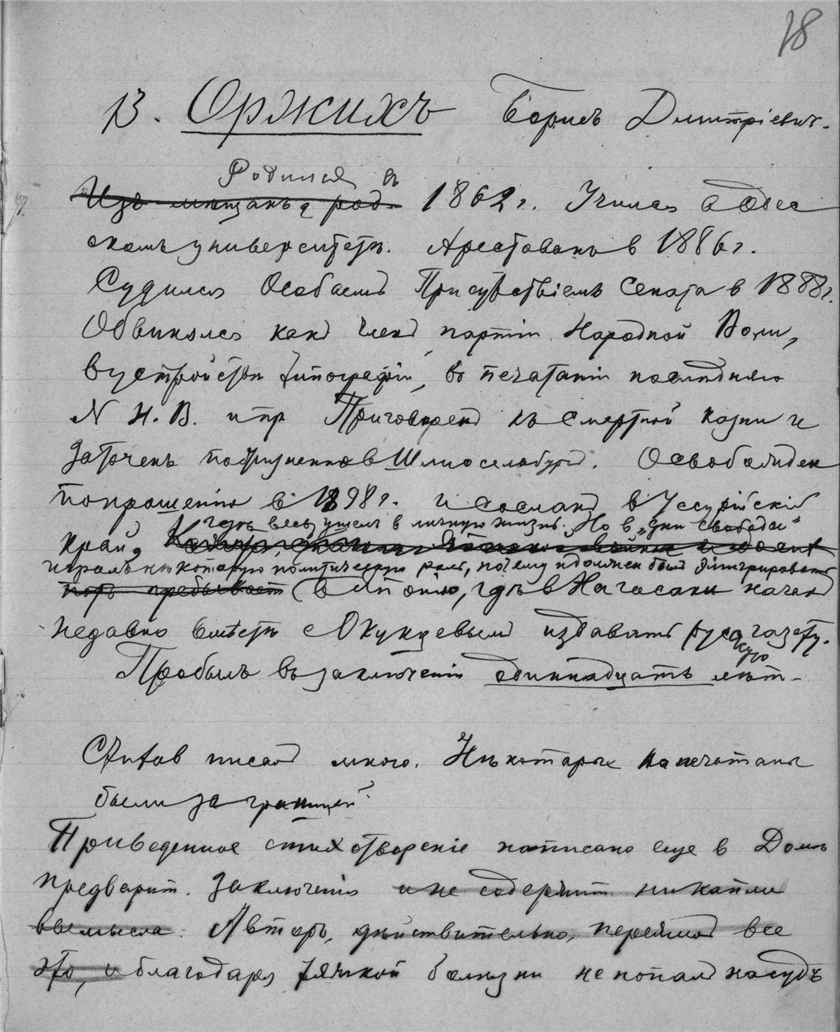 18
13. Оржихъ Борисъ Дмитріевич.
Родился въ
Изъ мещанъ, род. 1862 г. Учился в Одес
скомъ университетѣ. Арестованъ в 1886 г.
Судился Особымъ Присутствіемъ Сената в 1888 г.
Обвинялся какъ членъ партіи Народной Воли,
в устройствѣ типографіи, въ печатаніи послѣдняго
N Н.В. и пр. Приговоренъ къ смертной казни и
заточенъ пожизненно в Шлиссельбургъ. Освобожден
по прошенію в 1898 г. и сосланъ в Уссурійскій
гдѣ весь ушелъ в личную жизнь. Но в „дни свободы"
край,
игралъ нѣкоторую политическую роль, почему и долженъ былъ эмигрировать
поръ пребываетъ в Японію, гдѣ в Нагасаки началъ
недавно вмѣстѣ с Окунцевымъ издавать русскую газету.
Пробылъ въ заключеніи одиннадцать лѣт.
Стихов писалъ много. Нѣкоторые напечатаны
были за границей.
Приведенное стихотвореніе написано еще в Домѣ
предварит. заключенія и не содержит никакого
вымысла. Авторъ, дѣйствительно, пережилъ все
это, и благодаря тяжкой болѣзни не попалъ на судъ